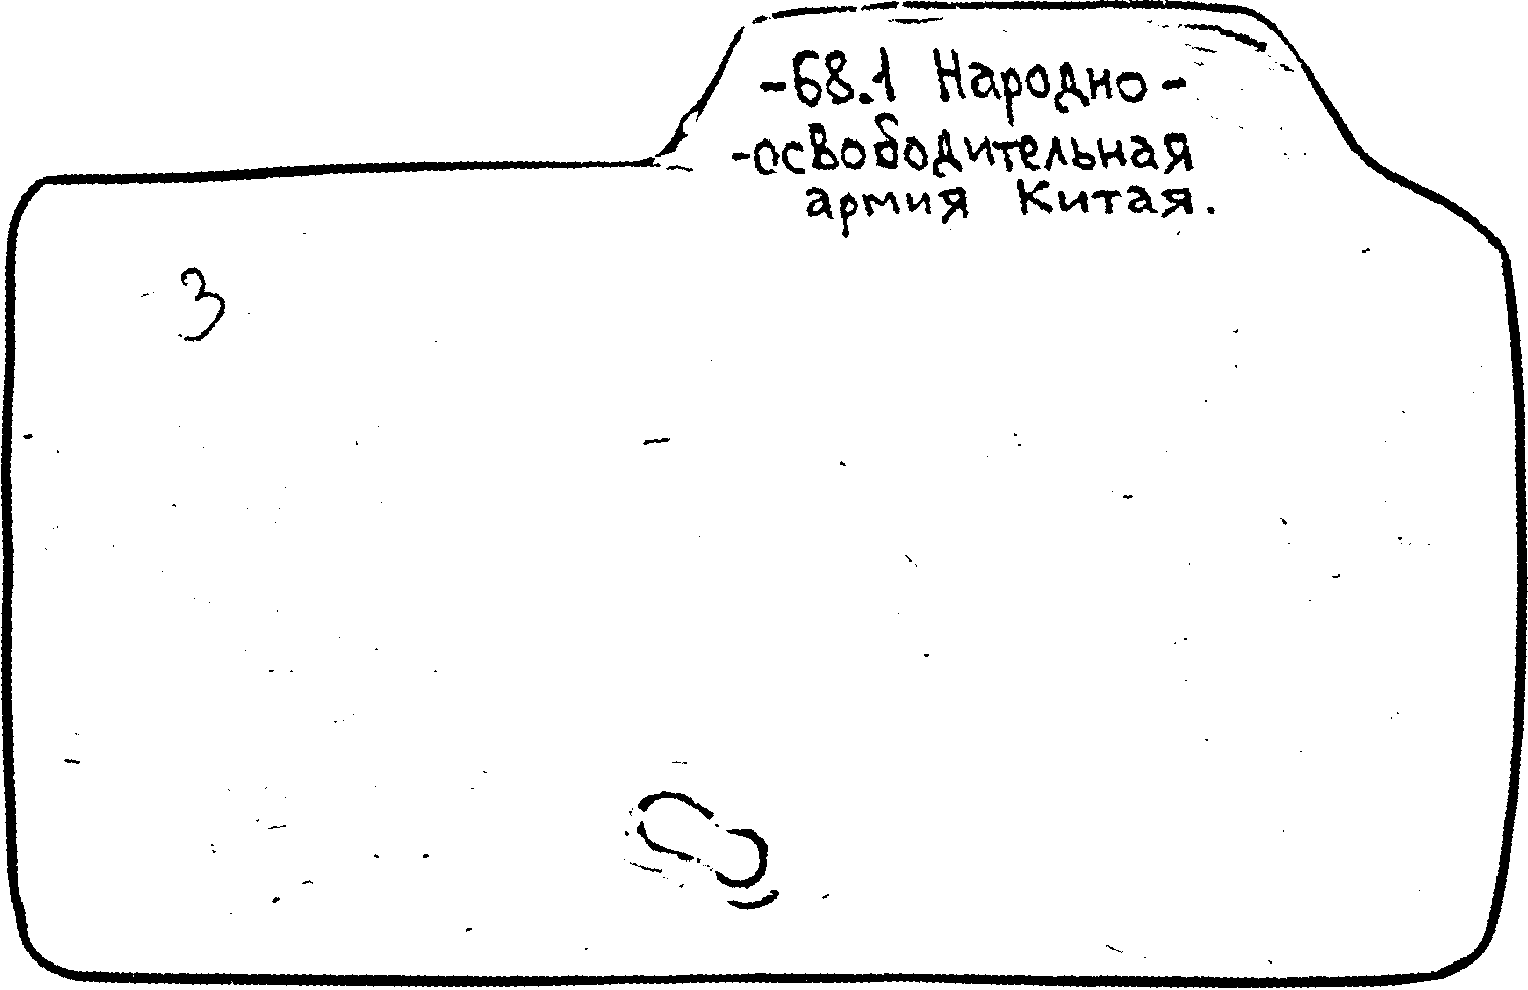 -68.1 Народно-
-освободительная
армия Китая.
3